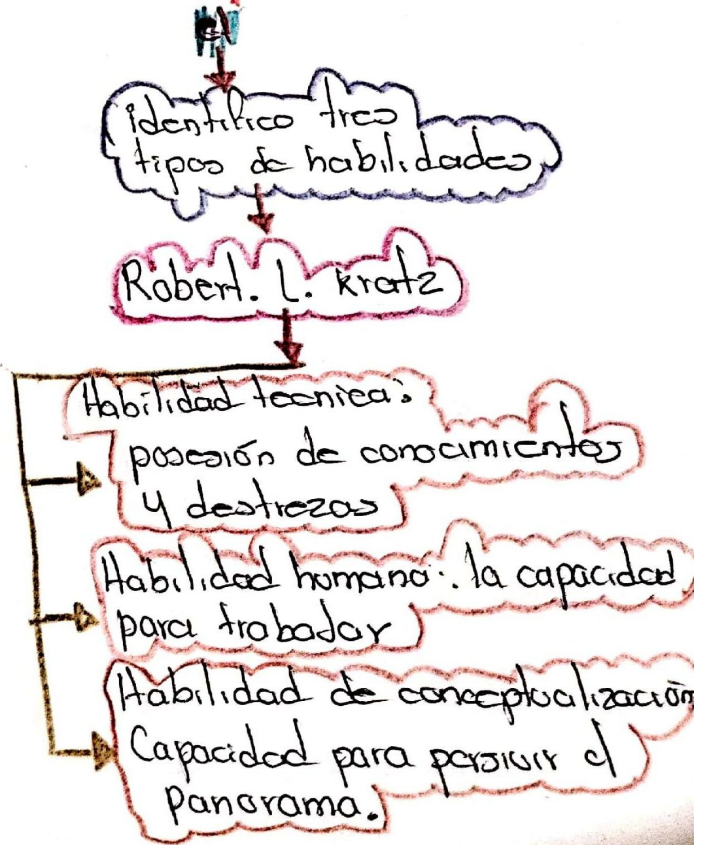 identifico tres
tipos de habilidades
Robert. L. Kratz
Habilidad tecnica:
posesión de conocimientos
y destrezas
Habilidad humana: la capacidad
para trabadar
Habilidad de conceptualización
Capacidad para persivir el
panorama.